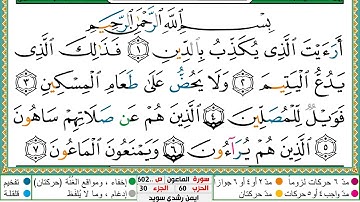 بِسْمِ اللَّهِ الرَّحْمَٰنِ الرَّحِيمِ
أَرَءَيْتَ الَّذِى يُكَذِّبُ بِالدِّينِ ١ فَذَٰلِكَ الَّذِى
يَدُعُّ الْيَتِيمَ ٢ وَلَا يَحُضُّ عَلَىٰ طَعَامِ الْمِسْكِينِ ٣
فَوَيْلٌ لِّلْمُصَلِّينَ ٤ الَّذِينَ هُمْ عَن صَلَاتِهِمْ سَاهُونَ
٥ الَّذِينَ هُمْ يُرَآءُونَ ٦ وَيَمْنَعُونَ الْمَاعُونَ ٧
تفخيم إخفاء، ومواقع الغُنَّة (حركتان) سورة الماعون ص ..602 مدّ ٢ أو ٤ أو ٦ جوازاً مدّ ٦ حركات لزوماً
قلقلة إدغام، وما لا يُلفَظ الحزب 60 الجزء 30 مدّ حركتان مدّ واجب ٤ أو ٥ حركات
أيمن رشدي سويد